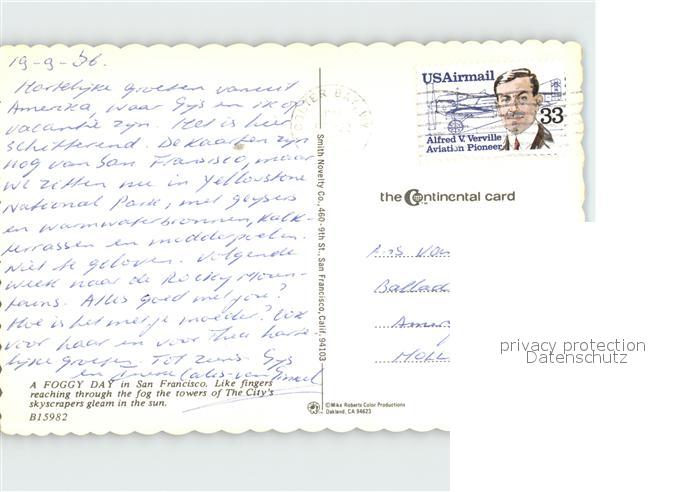 19-9-86.
Hartelijke groeten vanuit
Amerika, waar Gijs en ik op
vacantie zijn. Het is hier
schitterend. De kaarten zijn
nog van San Fransisco, maar
we zitten nu in Yellowstone
National Park, met geysers
en warmwaterbronnen, kalk-
terrassen en modderpoelen.
Niet te geloven. Volgende
week naar de Rocky Moun-
tains. Alles goed met jou?
Hoe is het met je moeder? Ook
voor haar en voor Thea harte-
lijke groeten. Tot ziens. Gijs
en
A FOGGY DAY in San Francisco. Like fingers
reaching through the fog the towers of The City's
skyscrapers gleam in the sun.
B15982
Smith Novelty Co., 460-9th St., San Francisco, Calif. 94103
USAirmail
33
Alfred V. Verville
Aviation Pioneer
the Continental card
Ballad
Am
Holl
©Mike Roberts Color Productions
Oakland, CA 94623
privacy protection
Datenschutz